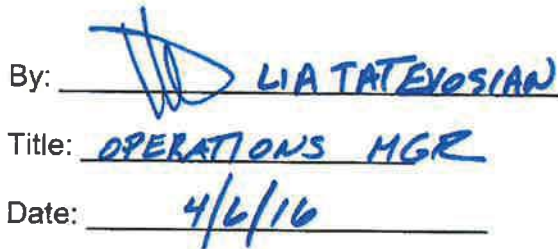 By: LIA TATEVOSIAN
Title: OPERATIONS MGR
Date: 4/6/16